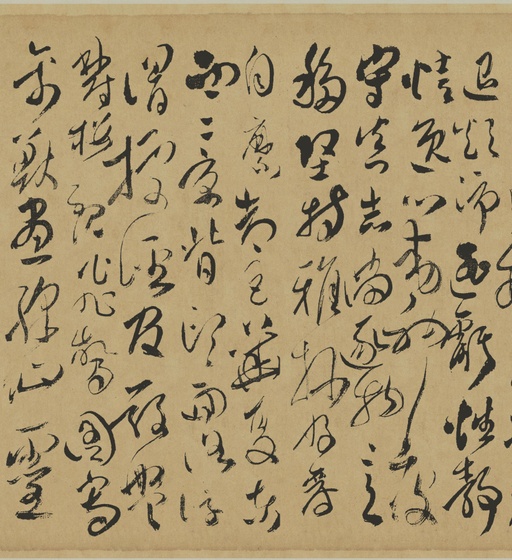 退顛沛匪虧性靜
情逸心動神疲
守真志滿逐物意
移堅持雅操好爵
自縻都邑華夏東
西二京背邙面洛浮
渭據涇宮殿盤
鬱樓觀飛驚圖寫
禽獸畫綵仙靈